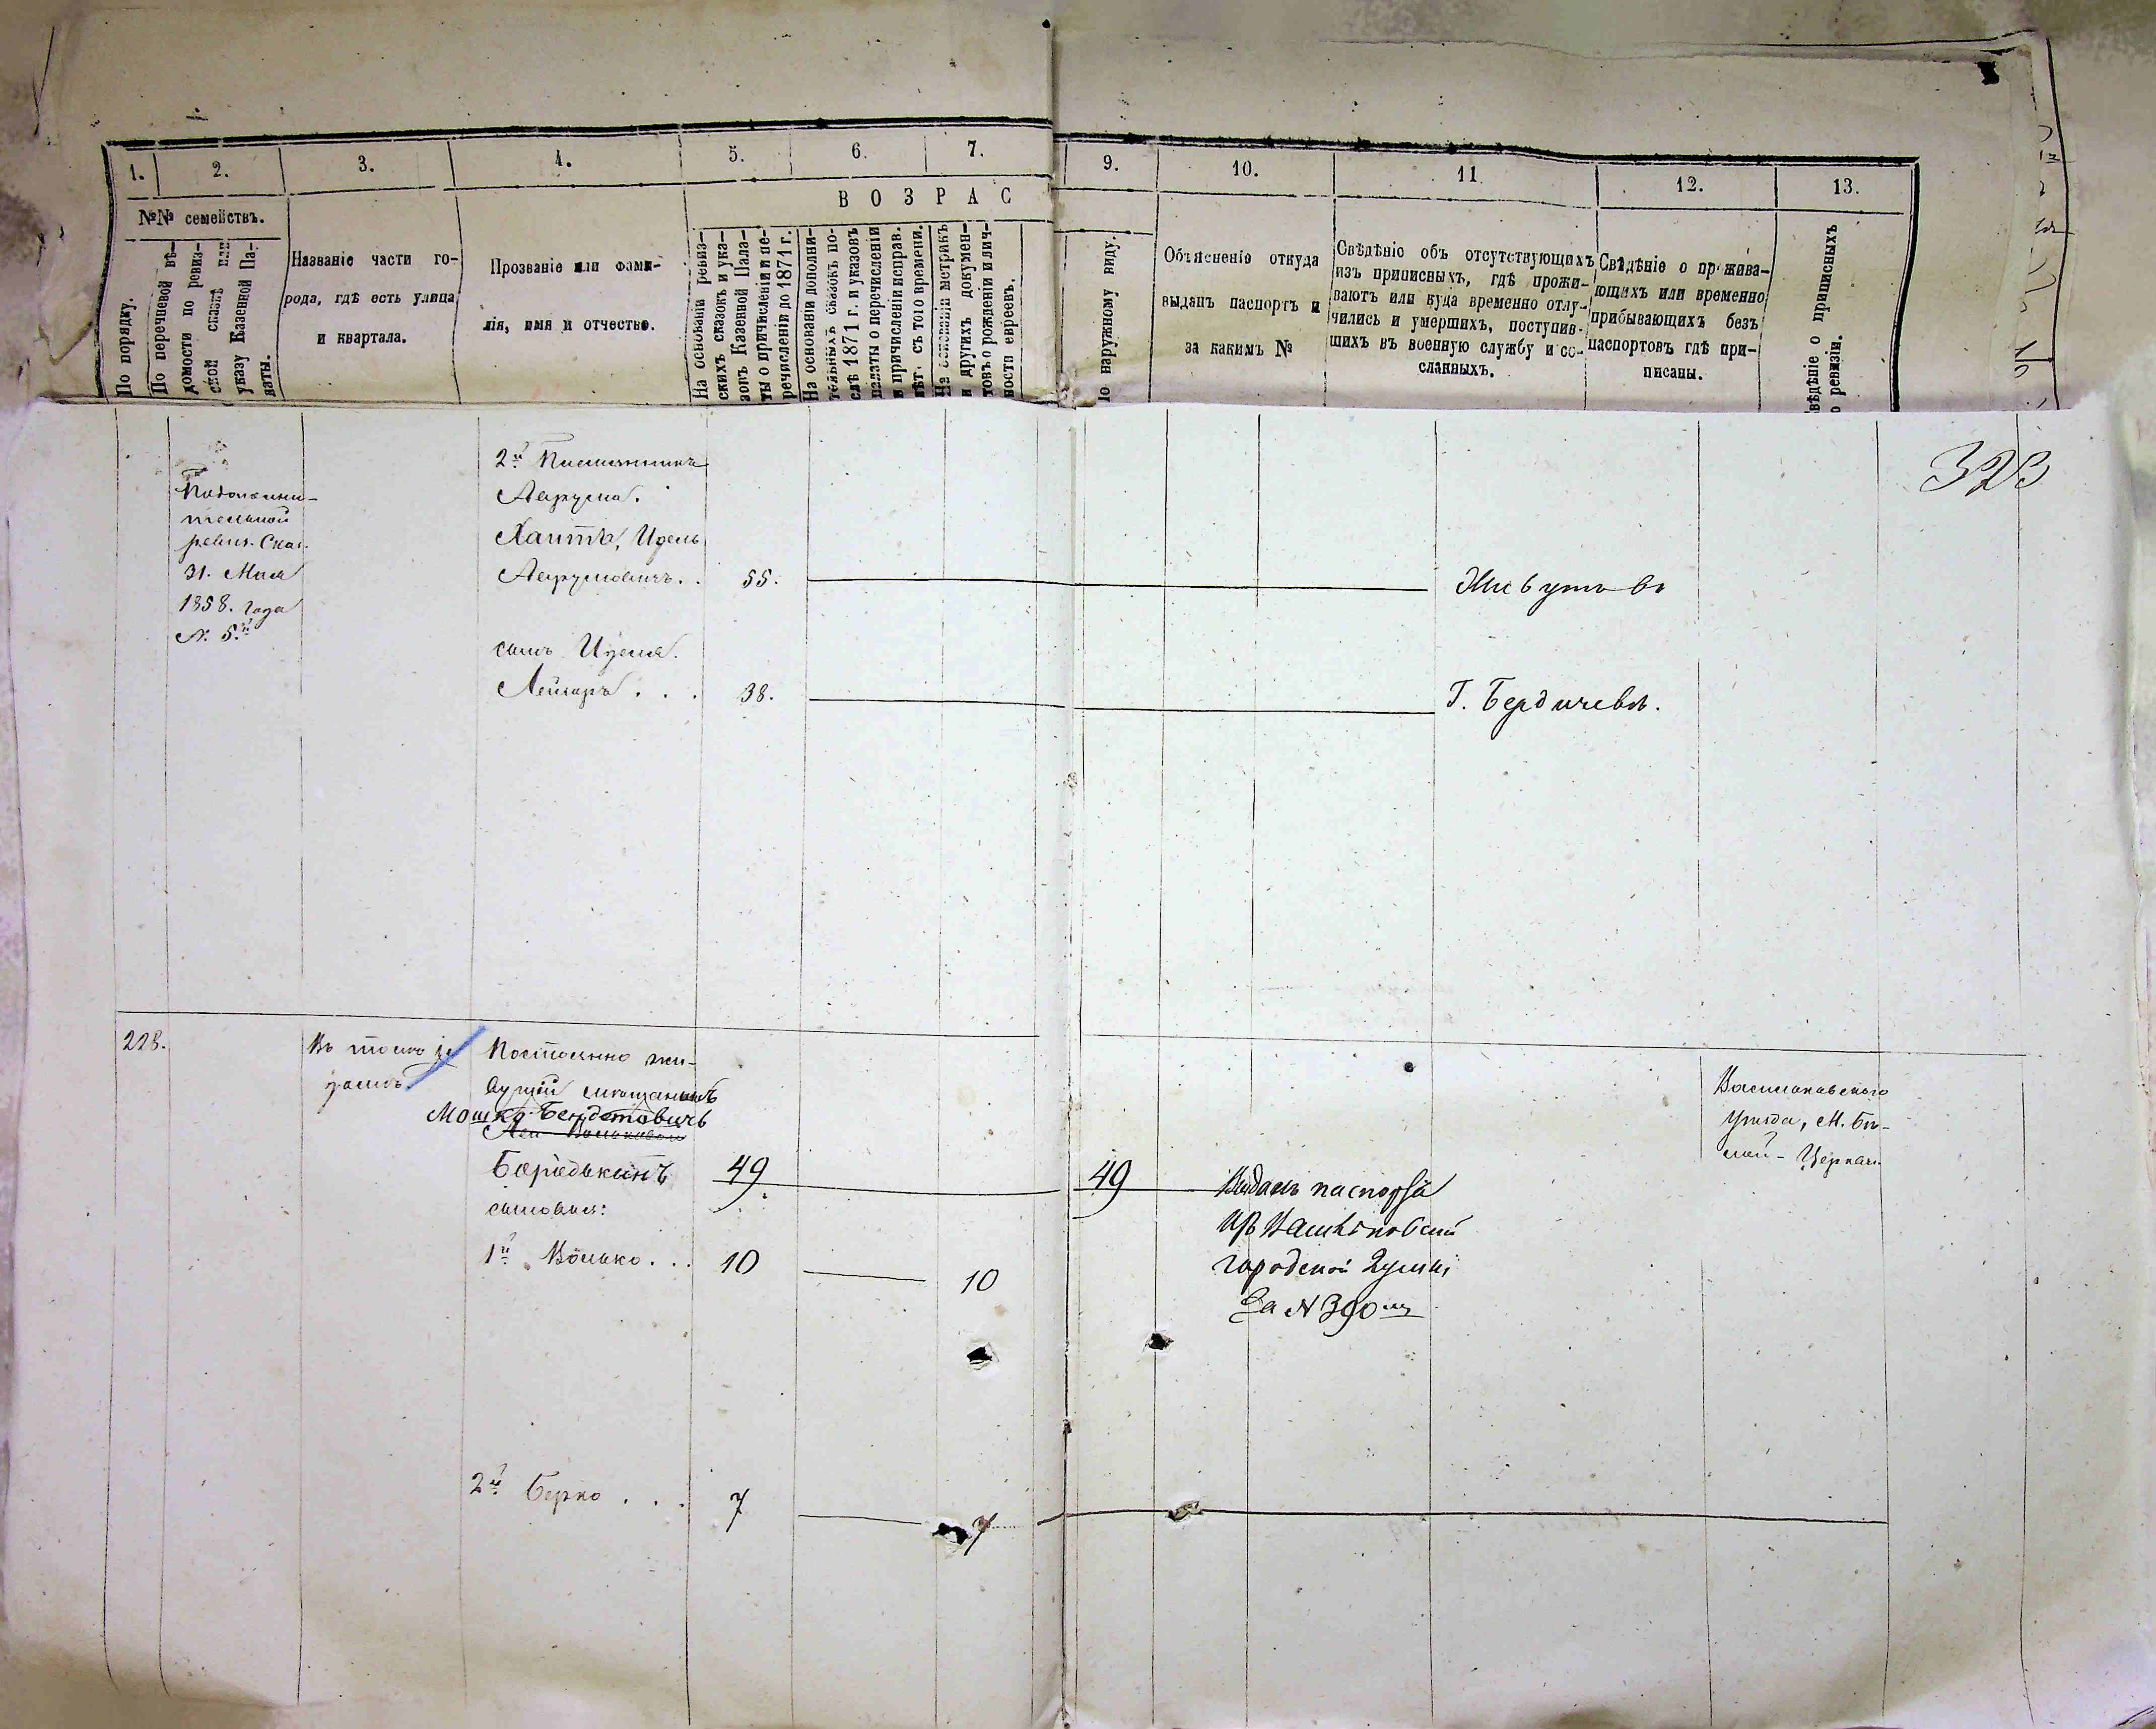 1. 2. 3. 4. 5. 6. 7. 9. 10. 11 12. 13.
№№ семействъ.
В О З Р А С
По порядку.
По перечневой вѣ-
домости по ревиз-
ской сказкѣ или
указу Казенной Па-
латы.
Названіе части го-
рода, гдѣ есть улица
и квартала.
Прозваніе или фами-
лія, имя и отчество.
На основаніи ревиз-
скихъ сказокъ и ука-
зовъ Казенной Пала-
ты о причисленіи и пе-
речисленіи до 1871 г.
На основаніи дополни-
тельныхъ сказокъ по-
слѣ 1871 г. и указовъ
палаты о перечисленіи
и причисленіи исправ.
лѣт. съ того времени.
На основаніи метрикъ
и другихъ докумен-
товъ о рожденіи и лич-
ности евреевъ.
По наружному виду.
Объясненіе откуда
выданъ паспортъ и
за какимъ №
Свѣдѣніе объ отсутствующихъ
изъ приписныхъ, гдѣ прожи-
ваютъ или куда временно отлу-
чились и умершихъ, поступив-
шихъ въ военную службу и со-
сланныхъ.
Свѣдѣніе о прожива-
ющихъ или временно
прибывающихъ безъ
паспортовъ гдѣ при-
писаны.
Свѣдѣніе о приписныхъ
по ревизіи.
323
По дополни-
тельной
ревиз. Сказ.
31. Мая
1858. года
№. 5.й
2й Племянникъ
Аврума.
Хаитъ, Идель
Аврумовичъ.. 55. Живутъ въ
сынъ Иделя.
Лейзоръ . . . 38. Г. Бердичевѣ.
228. Въ томъ же
домѣ.
Постоянно жи-
вущій мѣщанинъ
Мошко Бендетовичъ
Бородькинъ 49 49
сыновья:
1й Волько... 10 10
2й Берко . . . 7 7
Выданъ паспортъ
изъ Васильковской
городской Думы
За № 390мъ
Васильковскаго
Уѣзда, М. Бѣ-
лой-Церкви.